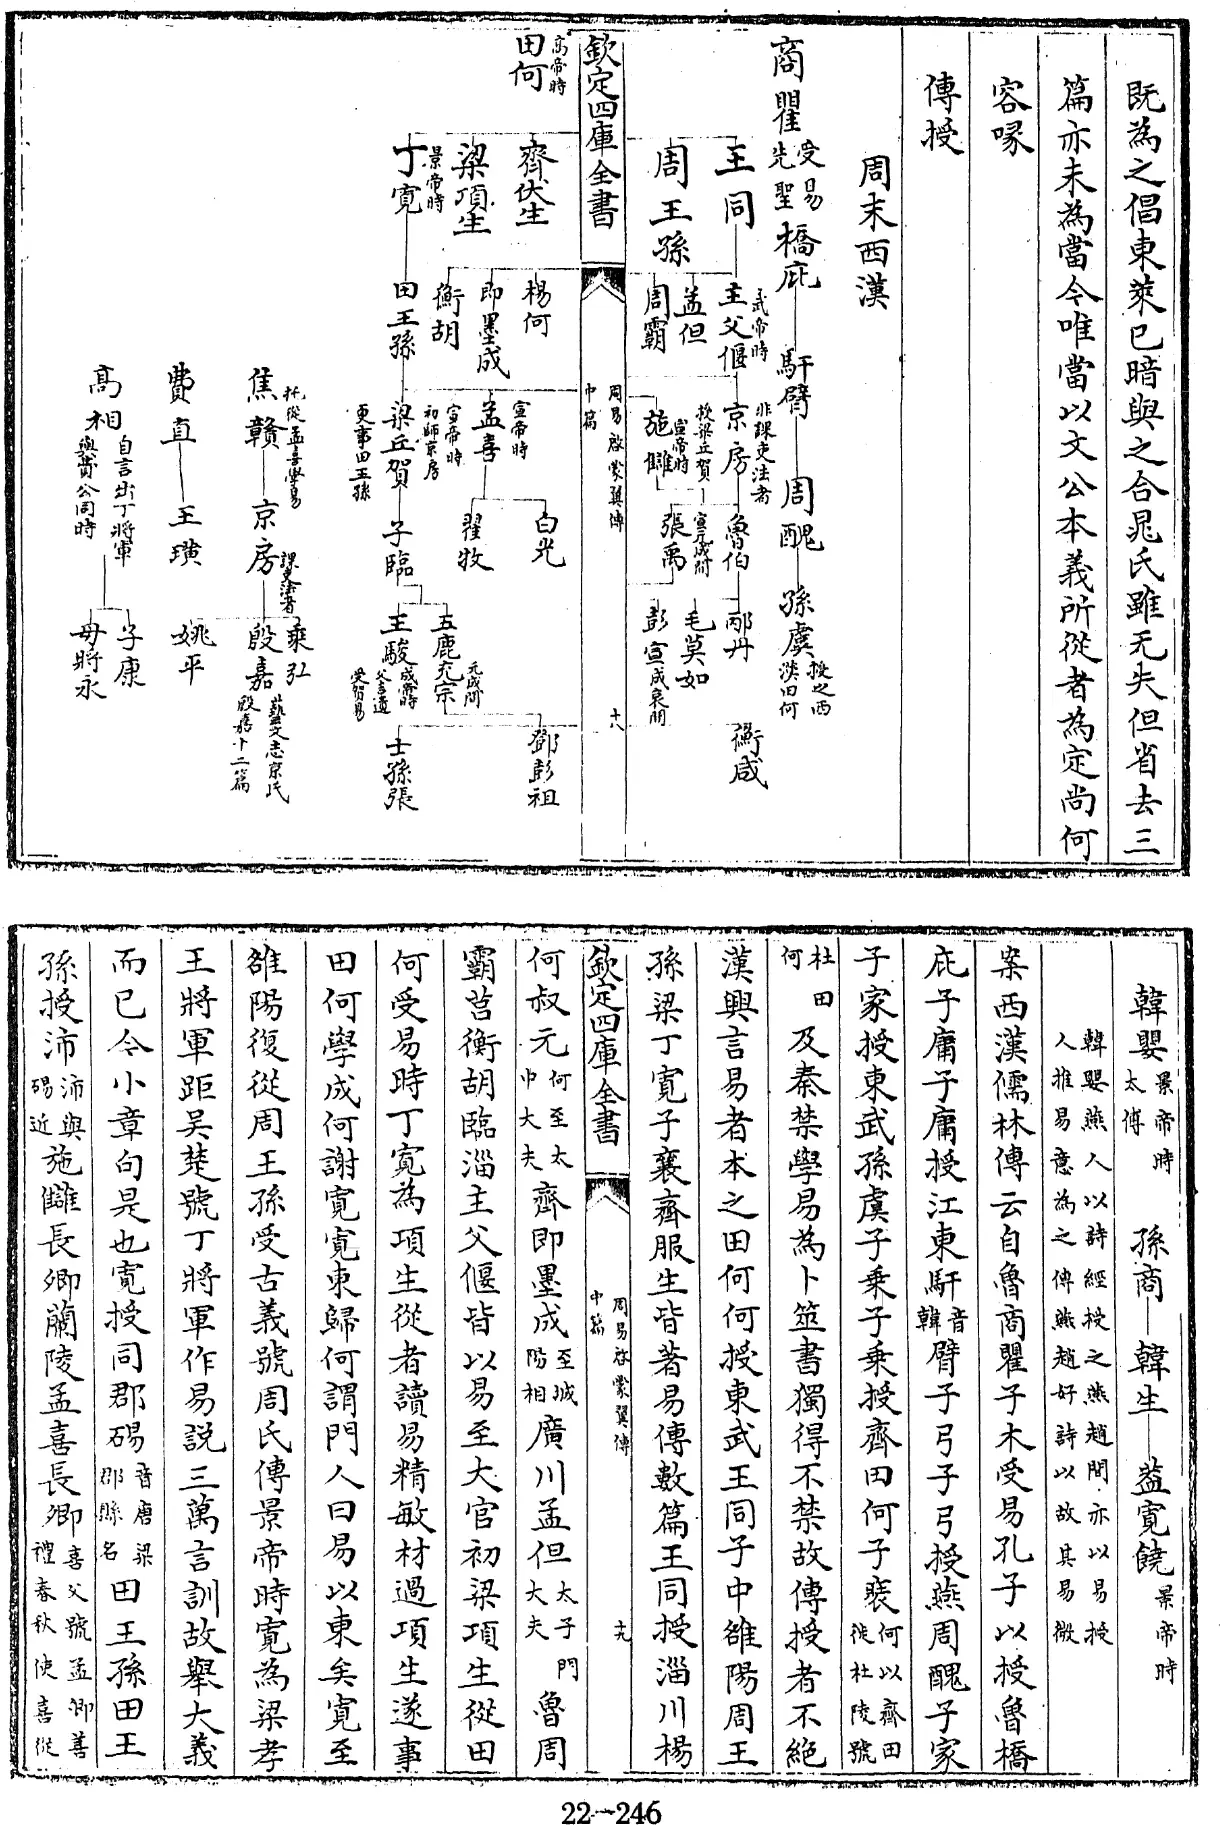 既為之倡東萊已暗與之合晁氏雖无失但省去三
篇亦未為當今唯當以文公本義所從者為定尚何
容喙
傳授
周末西漢
商瞿受易先聖 橋庇 馯臂 周醜 孫虞授之西漢田何
王同 主父偃武帝時 京房非課吏法者 魯伯 邴丹 衡咸
周王孫 孟但 教梁丘賀 毛莫如
周霸 施讎宣帝時 張禹宣元成間 彭宣成哀間
欽定四庫全書
周易啓蒙翼傳
中篇
十八
田何髙帝時
齊伏生 楊何 白光 鄧彭祖
梁項生 即墨成 孟喜宣帝時 翟牧 五鹿充宗元成間
衡胡
丁寛景帝時 田王孫 梁丘賀宣帝時初師京房更事田王孫 子臨 王駿成帝時父吉遣受賀易 士孫張
焦贛托從孟喜學易 京房課吏法者 乘弘
殷嘉藝文志京氏殷嘉十二篇
姚平
費直 王璜
髙相自言出丁將軍與費公同時 子康
毋將永
韓嬰景帝時太傅 孫商 韓生 葢寛饒景帝時
韓嬰燕人以詩經授之燕趙間亦以易授
人推易意為之傳燕趙好詩以故其易微
案西漢儒林傳云自魯商瞿子木受易孔子以授魯橋
庇子庸子庸授江東馯音韓臂子弓子弓授燕周醜子家
子家授東武孫虞子乘子乘授齊田何子裝何以齊田徙杜陵號
杜田何及秦禁學易為卜筮書獨得不禁故傳授者不絶
漢興言易者本之田何何授東武王同子中雒陽周王
孫梁丁寛子襄齊服生皆著易傳數篇王同授淄川楊
欽定四庫全書
周易啓蒙翼傳
中篇
十九
何叔元何至太中大夫齊即墨成至城陽相廣川孟但太子門大夫魯周
霸莒衡胡臨淄主父偃皆以易至大官初梁項生從田
何受易時丁寛為項生從者讀易精敏材過項生遂事
田何學成何謝寛寛東歸何謂門人曰易以東矣寛至
雒陽復從周王孫受古義號周氏傳景帝時寛為梁孝
王將軍距吳楚號丁將軍作易説三萬言訓故舉大義
而已今小章句是也寛授同郡碭音唐梁郡縣名田王孫田王
孫授沛沛與碭近施讎長卿蘭陵孟喜長卿喜父號孟卿善禮春秋使喜從
22-246